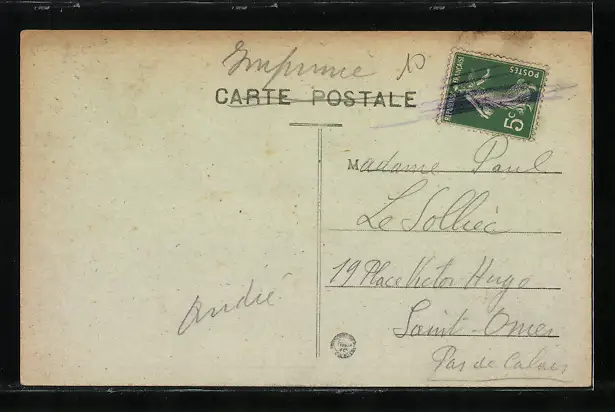 Imprimé 10
CARTE POSTALE
RÉPUBLIQUE FRANÇAISE
POSTES
5c
Madame Paul
Le Solliec
19 Place Victor Hugo
Saint-Omer
Pas de Calais
André